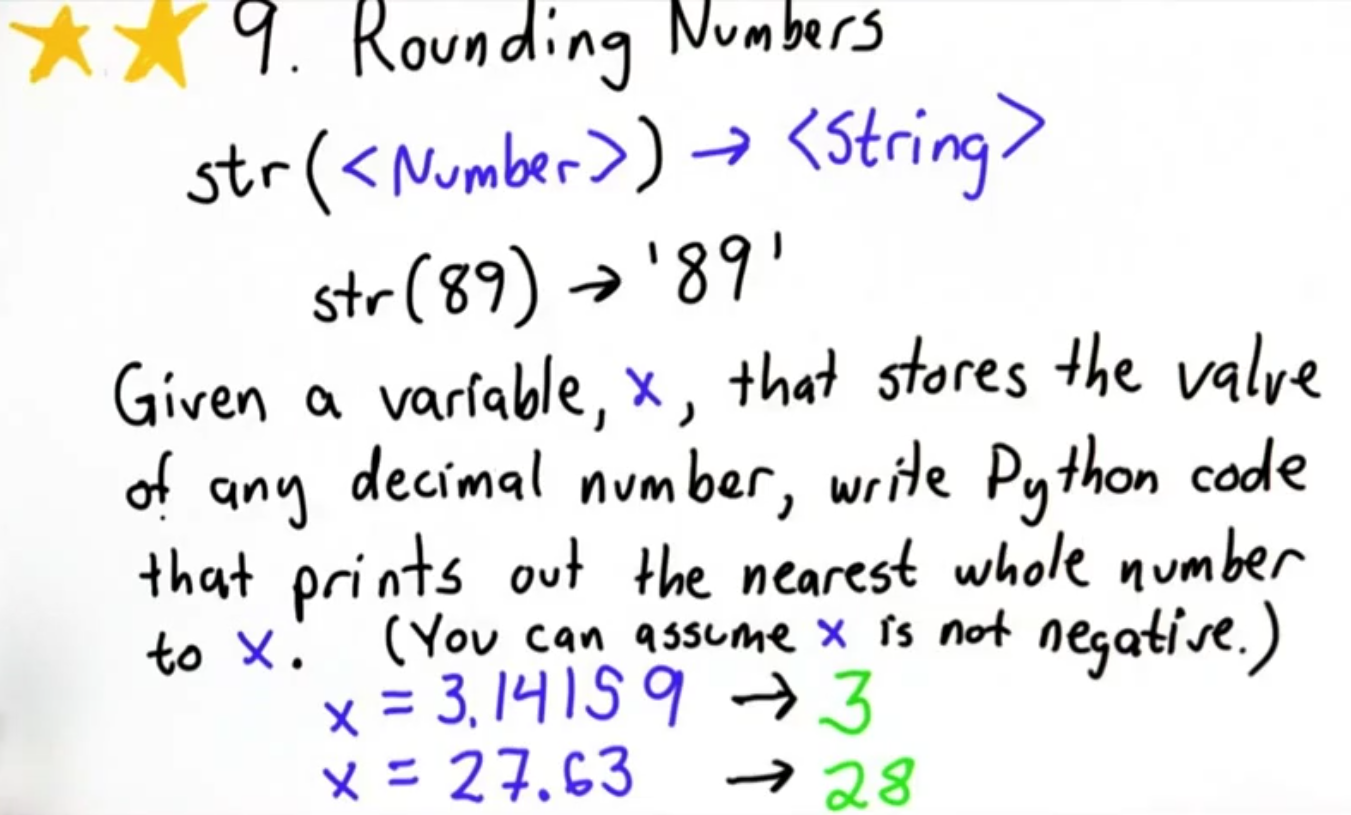 9. Rounding Numbers
str(<Number>) → <String>
str(89) → '89'
Given a variable, x, that stores the value
of any decimal number, write Python code
that prints out the nearest whole number
to x. (You can assume x is not negative.)
x = 3.14159 → 3
x = 27.63 → 28